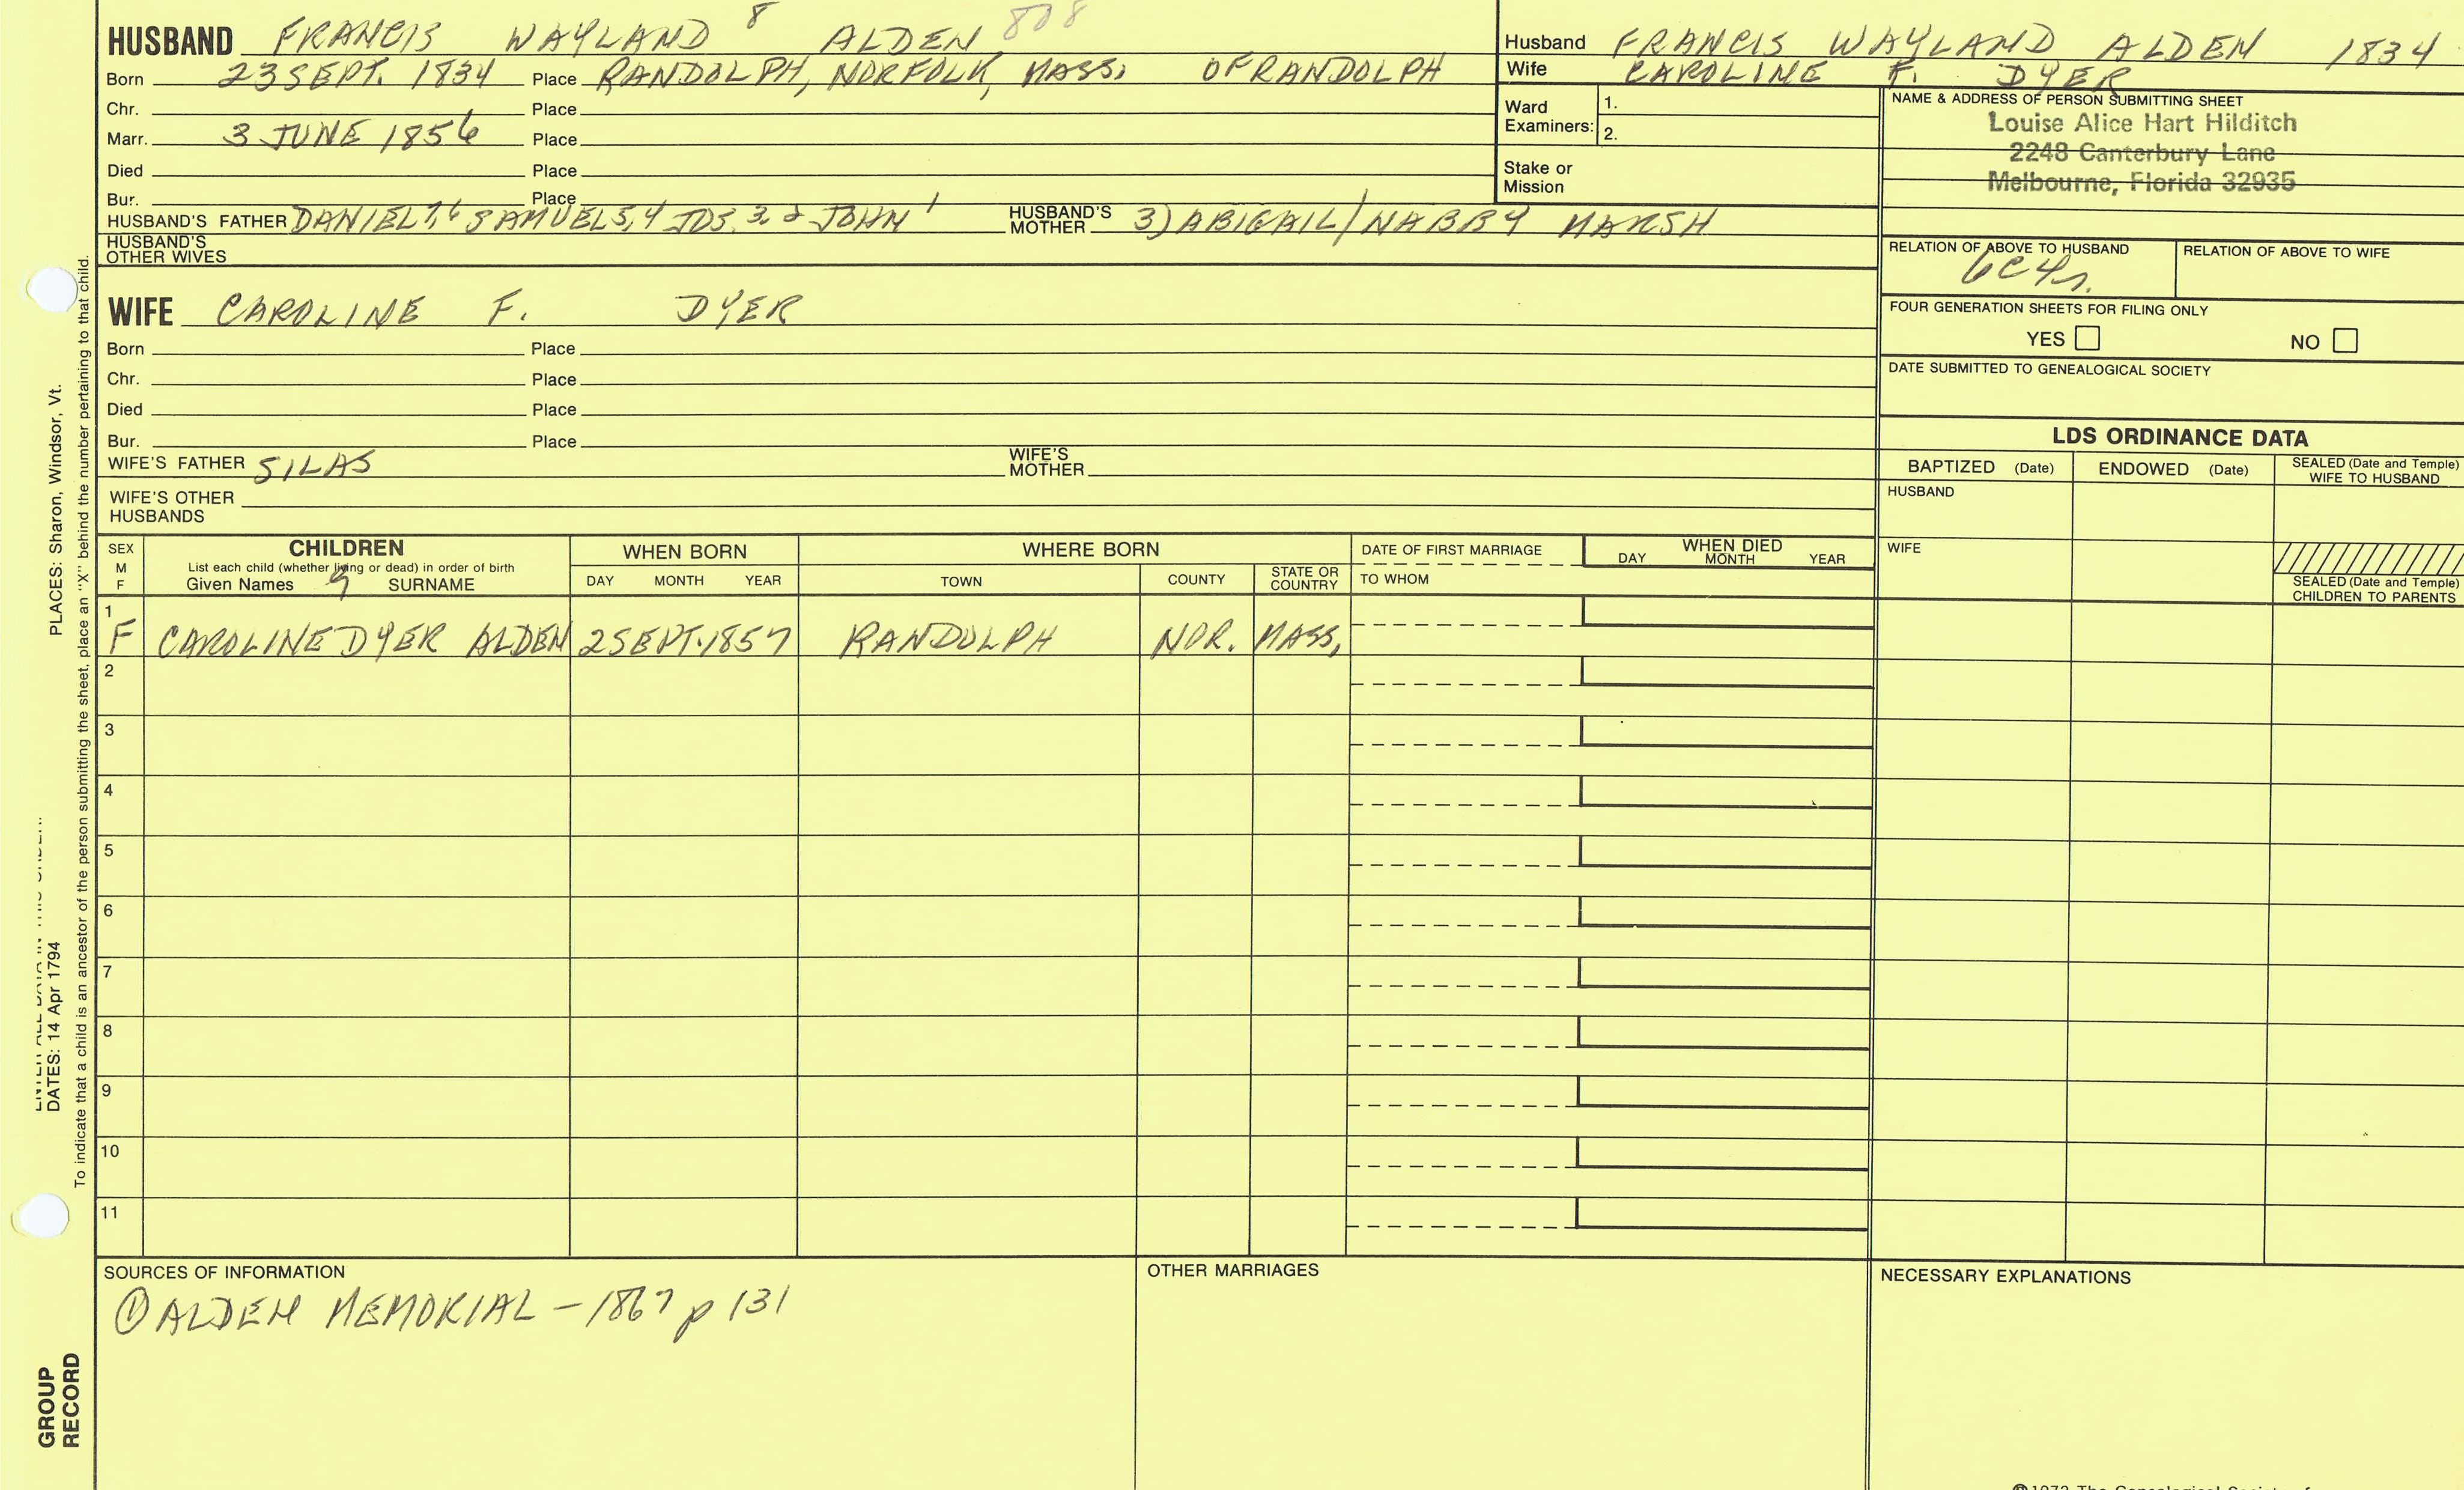 HUSBAND FRANCIS WAYLAND 8 ALDEN 808
Born 23 SEPT. 1834 Place RANDOLPH, NORFOLK, MASS. OF RANDOLPH
Chr. Place
Marr. 3 JUNE 1856 Place
Died Place
Bur. Place
HUSBAND'S FATHER DANIEL 7,6 SAMUEL 5,4 JOS. 3,2 JOHN 1 HUSBAND'S MOTHER 3) ABIGAIL/NABBY MARSH
HUSBAND'S OTHER WIVES
Husband FRANCIS WAYLAND ALDEN 1834
Wife CAROLINE F. DYER
Ward Examiners: 1.
2.
Stake or Mission
NAME & ADDRESS OF PERSON SUBMITTING SHEET
Louise Alice Hart Hilditch
2248 Canterbury Lane
Melbourne, Florida 32935
RELATION OF ABOVE TO HUSBAND RELATION OF ABOVE TO WIFE
FOUR GENERATION SHEETS FOR FILING ONLY
YES NO
DATE SUBMITTED TO GENEALOGICAL SOCIETY
WIFE CAROLINE F. DYER
Born Place
Chr. Place
Died Place
Bur. Place
WIFE'S FATHER SILAS WIFE'S MOTHER
WIFE'S OTHER HUSBANDS
LDS ORDINANCE DATA
BAPTIZED (Date) ENDOWED (Date) SEALED (Date and Temple) WIFE TO HUSBAND
HUSBAND
WIFE
SEALED (Date and Temple) CHILDREN TO PARENTS
SEX M F
CHILDREN
List each child (whether living or dead) in order of birth
Given Names 9 SURNAME
WHEN BORN
DAY MONTH YEAR
WHERE BORN
TOWN COUNTY STATE OR COUNTRY
DATE OF FIRST MARRIAGE
TO WHOM
WHEN DIED
DAY MONTH YEAR
1
F CAROLINE DYER ALDEN 2 SEPT. 1857 RANDOLPH NOR. MASS,
2
3
4
5
6
7
8
9
10
11
SOURCES OF INFORMATION
① ALDEN MEMORIAL - 1867 p 131
OTHER MARRIAGES
NECESSARY EXPLANATIONS
PLACES: Sharon, Windsor, Vt.
DATES: 14 Apr 1794
To indicate that a child is an ancestor of the person submitting the sheet, place an "X" behind the number pertaining to that child.
GROUP
RECORD